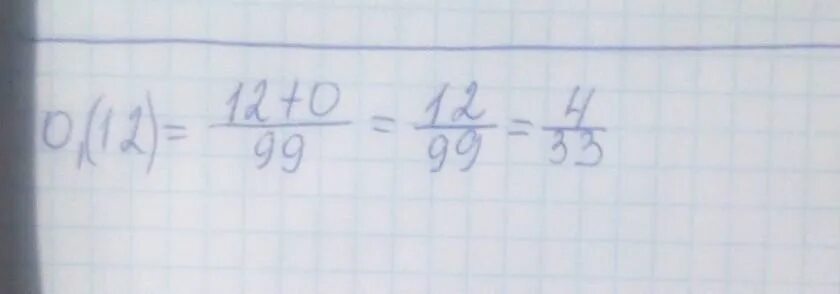 0,(12) = 12+0/99 = 12/99 = 4/33